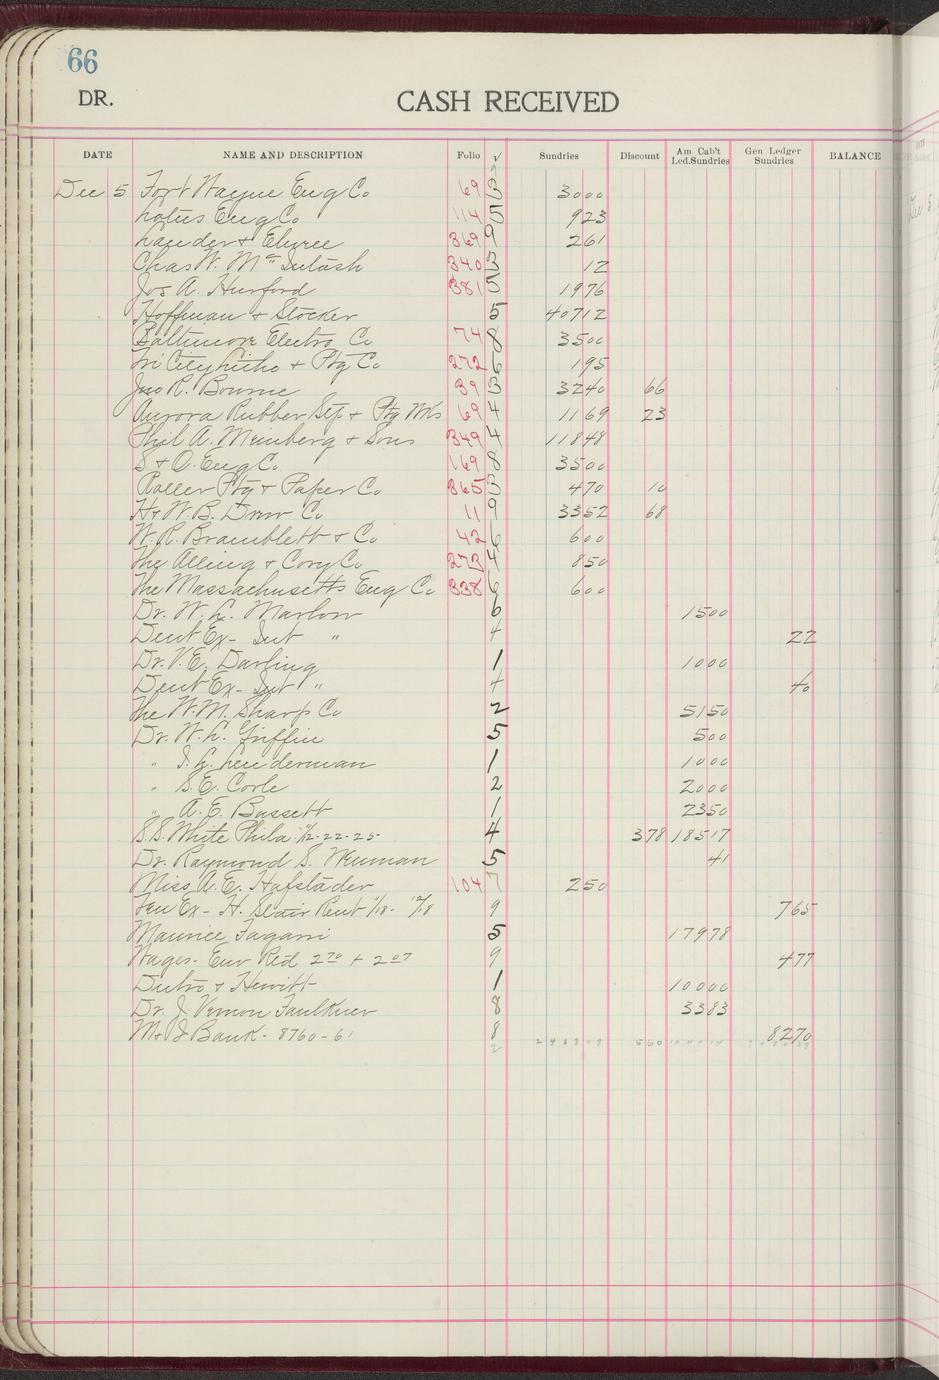 66
DR. CASH RECEIVED
DATE NAME AND DESCRIPTION Folio √ Sundries Discount Am Cab't Led.Sundries Gen Ledger Sundries BALANCE
Dec 5 Fort Wayne Eng Co 69 3 3000
Lotus Eng Co 114 5 923
Lander & 369 9 261
Chas W. McIntosh 340 3 12
Jos A. Hurford 381 5 1976
Hoffman & Stocker 5 40712
Baltimore Electro Co 74 8 3500
Tri City Litho & Ptg Co 272 6 195
Jno R. Bourne 39 3 3240 66
Aurora Rubber Stp & Ptg Wks 69 4 1169 23
Phil A. Meinberg & Sons 349 4 11848
S & O. Eng Co 169 8 3500
Roller Ptg & Paper Co 365 3 470 10
H & W. B. Drew Co 11 9 3352 68
W. R. Bramblett & Co 42 6 600
The Alling & Cory Co 273 4 850
The Massachusetts Eng Co 338 6 600
Dr. W. L. Marlow 6 1500
Dent Ex - Int " 4 22
Dr. V. E. Darling 1 1000
Dent Ex - Int " 4 40
The W. M. Sharp Co 2 5150
Dr. W. L. Griffin 5 500
" I. L. Lenderman 1 1000
" S. E. Corle 2 2000
" A. E. Bassett 1 2350
S.S. White Phila 11/12-22-25- 4 378 18517
Dr. Raymond S. Wenman 5 41
Miss A. E. Hafstader 104 7 250
Gen Ex - H. Blair Rent 11/18 - 12/18 9 765
Maurice Fagani 5 17978
Wages - Env Red 2 70 + 2 07 9 477
Dutro & Hewitt 1 10000
Dr. J. Vernon Faulkner 8 3383
M & J Bank - 8760-61 8 8270
560